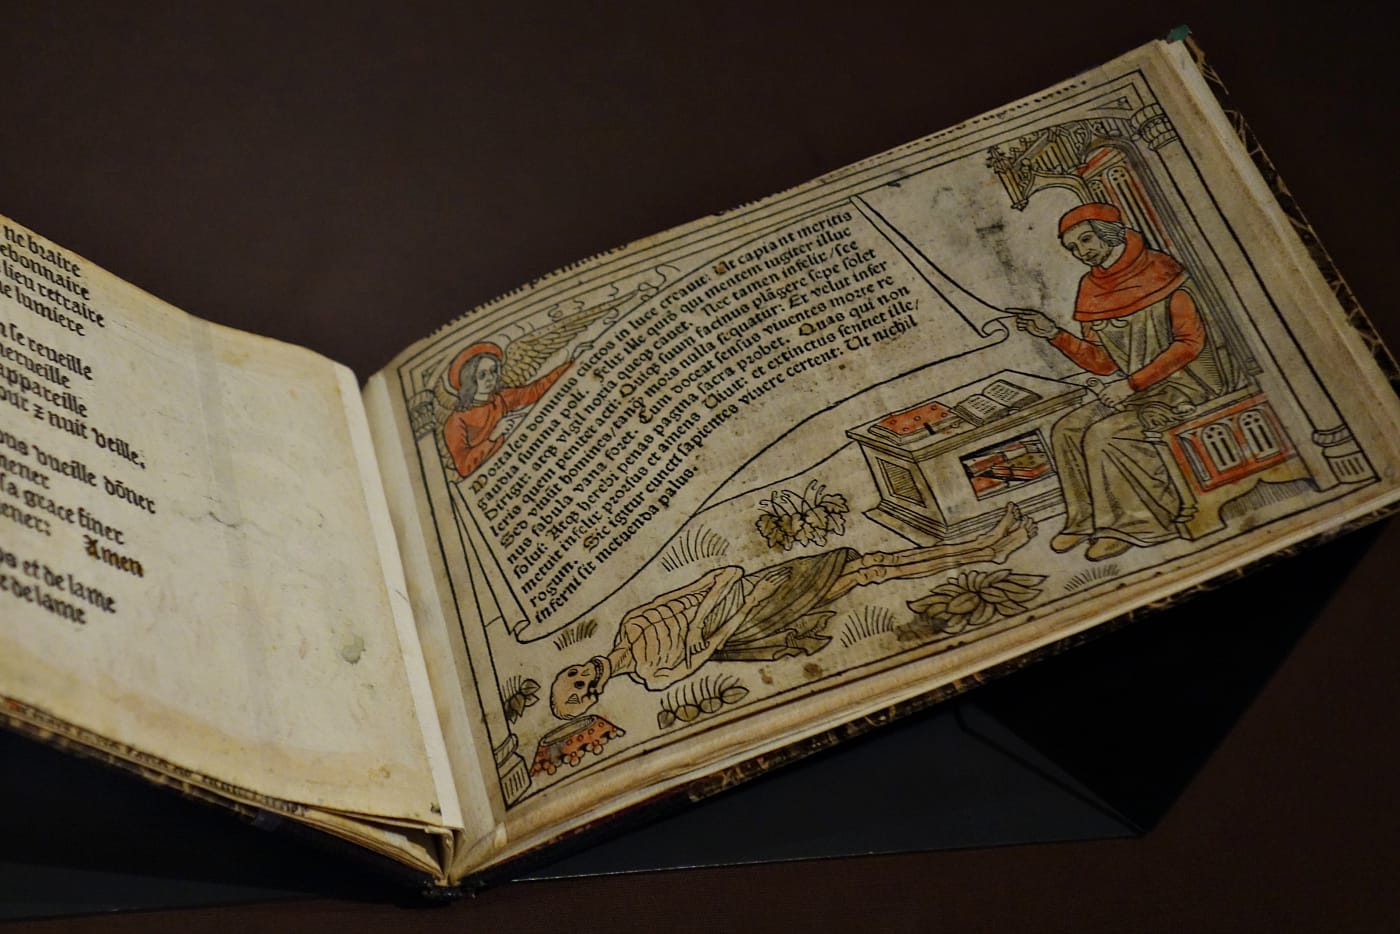 ne braire
ebonnaire
lieu retraire
e lumiere
n se reueille
merueille
appareille
our ⁊ nuit veille.
ous vueille dōner
mener
sa grace finer
ener: Amen
ps et de lame
e de lame
Mortales dominus cūctos in luce creauit: Ut capiant meritis
gaudia summa poli. Felix ille quidē qui mentem iugiter illuc
Dirigit: atqꝫ vigil noxia queqꝫ cauet. Nec tamen infelix/ sce
leris quem penitet acti: Quiqꝫ suum facinus plāgere sepe solet
Sed viuūt homines/ tanqꝫ mors nulla sequatur: Et velut infer
nus fabula vana foret. Cum doceat sensus viuentes morte re
solui: Atqꝫ herebi penas pagina sacra probet. Quas qui non
metuit infelix prorsus et amens Uiuit: et extinctus sentiet ille/
rogum. Sic igitur cuncti sapientes viuere certent: Ut nichil
inferni sit metuenda palus: